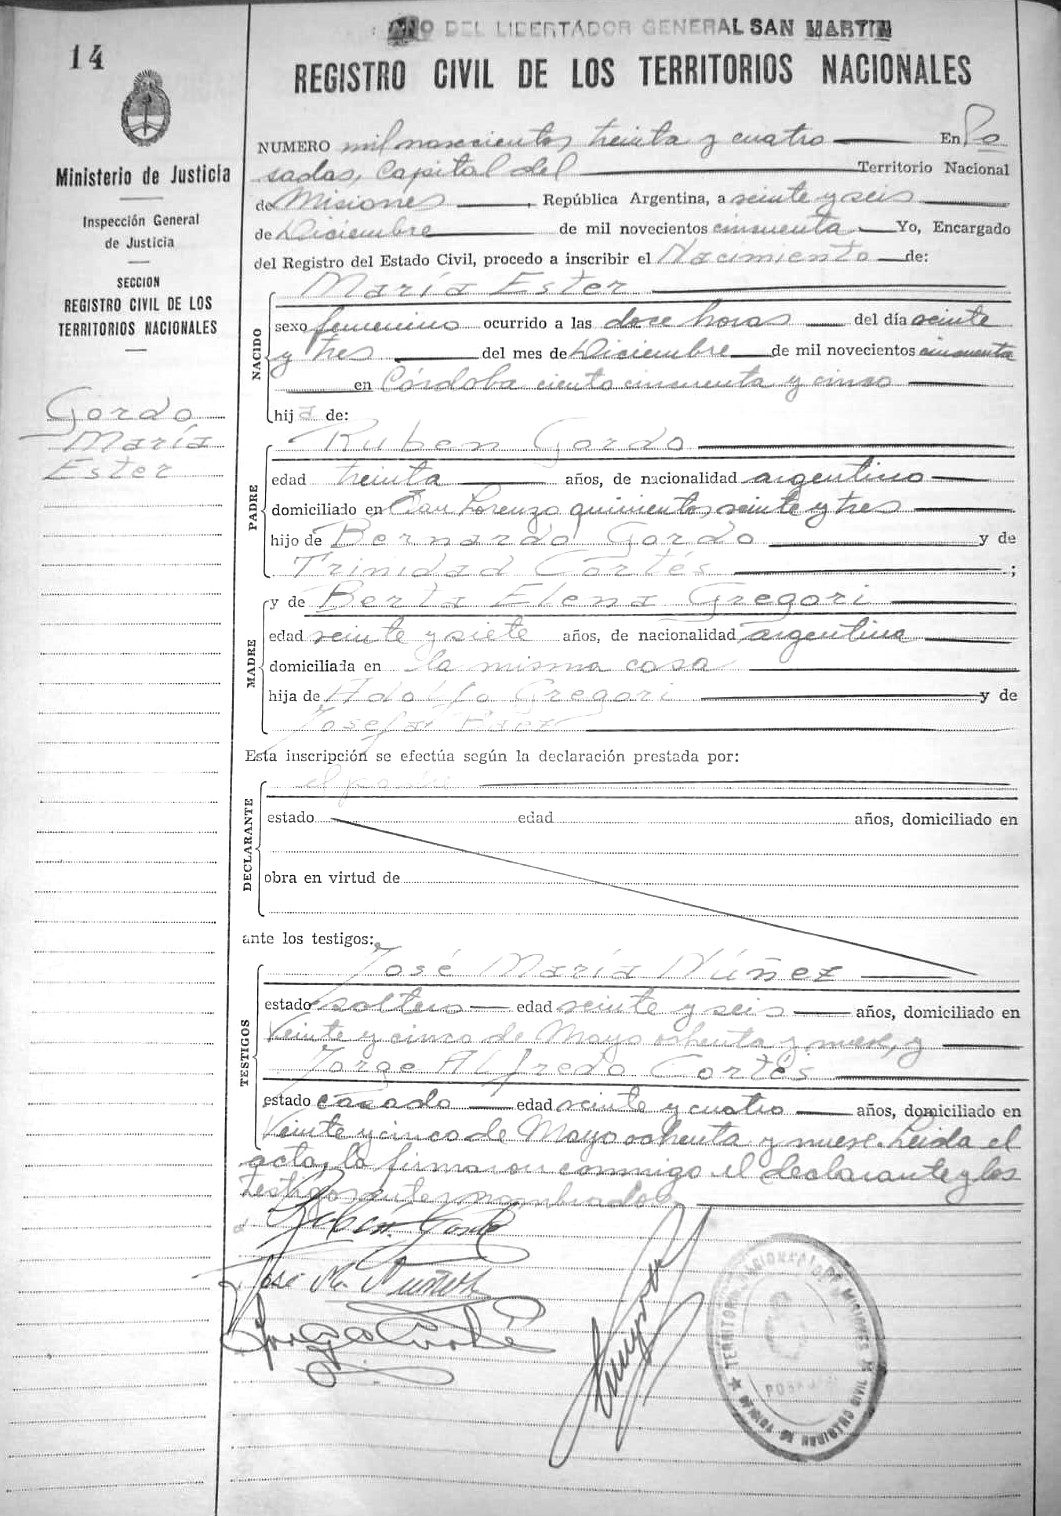 AÑO DEL LIBERTADOR GENERAL SAN MARTIN
14
REGISTRO CIVIL DE LOS TERRITORIOS NACIONALES
Ministerio de Justicia
Inspección General
de Justicia
SECCION
REGISTRO CIVIL DE LOS
TERRITORIOS NACIONALES
Gordo
María
Ester
NUMERO mil novecientos treinta y cuatro En Po
sadas, Capital del Territorio Nacional
de Misiones, República Argentina, a veinte y seis
de Diciembre de mil novecientos cincuenta Yo, Encargado
del Registro del Estado Civil, procedo a inscribir el Nacimiento de:
NACIDO
María Ester
sexo femenino ocurrido a las doce horas del día veinte
y tres del mes de Diciembre de mil novecientos cincuenta
en Córdoba ciento cincuenta y cinco
hija de:
PADRE
Ruben Gordo
edad treinta años, de nacionalidad argentino
domiciliado en San Lorenzo quinientos veinte y tres
hijo de Bernardo Gordo y de
Trinidad Cortés ;
MADRE
y de Berta Elena Gregori
edad veinte y siete años, de nacionalidad argentina
domiciliada en la misma casa
hija de Adolfo Gregori y de
Josefa
Esta inscripción se efectúa según la declaración prestada por:
DECLARANTE
el padre
estado edad años, domiciliado en
obra en virtud de
ante los testigos:
TESTIGOS
José María Núñez
estado soltero edad veinte y seis años, domiciliado en
Veinte y cinco de Mayo ochenta y nueve, y
Jorge Alfredo Cortés
estado casado edad veinte y cuatro años, domiciliado en
Veinte y cinco de Mayo ochenta y nueve. Leida el
acta, la firmaron conmigo el declarante y los
testigos antes nombrados
Rubén Gordo
José M. Núñez
Jorge A Cortés
TERRITORIO NACIONAL DE MISIONES
POSADAS